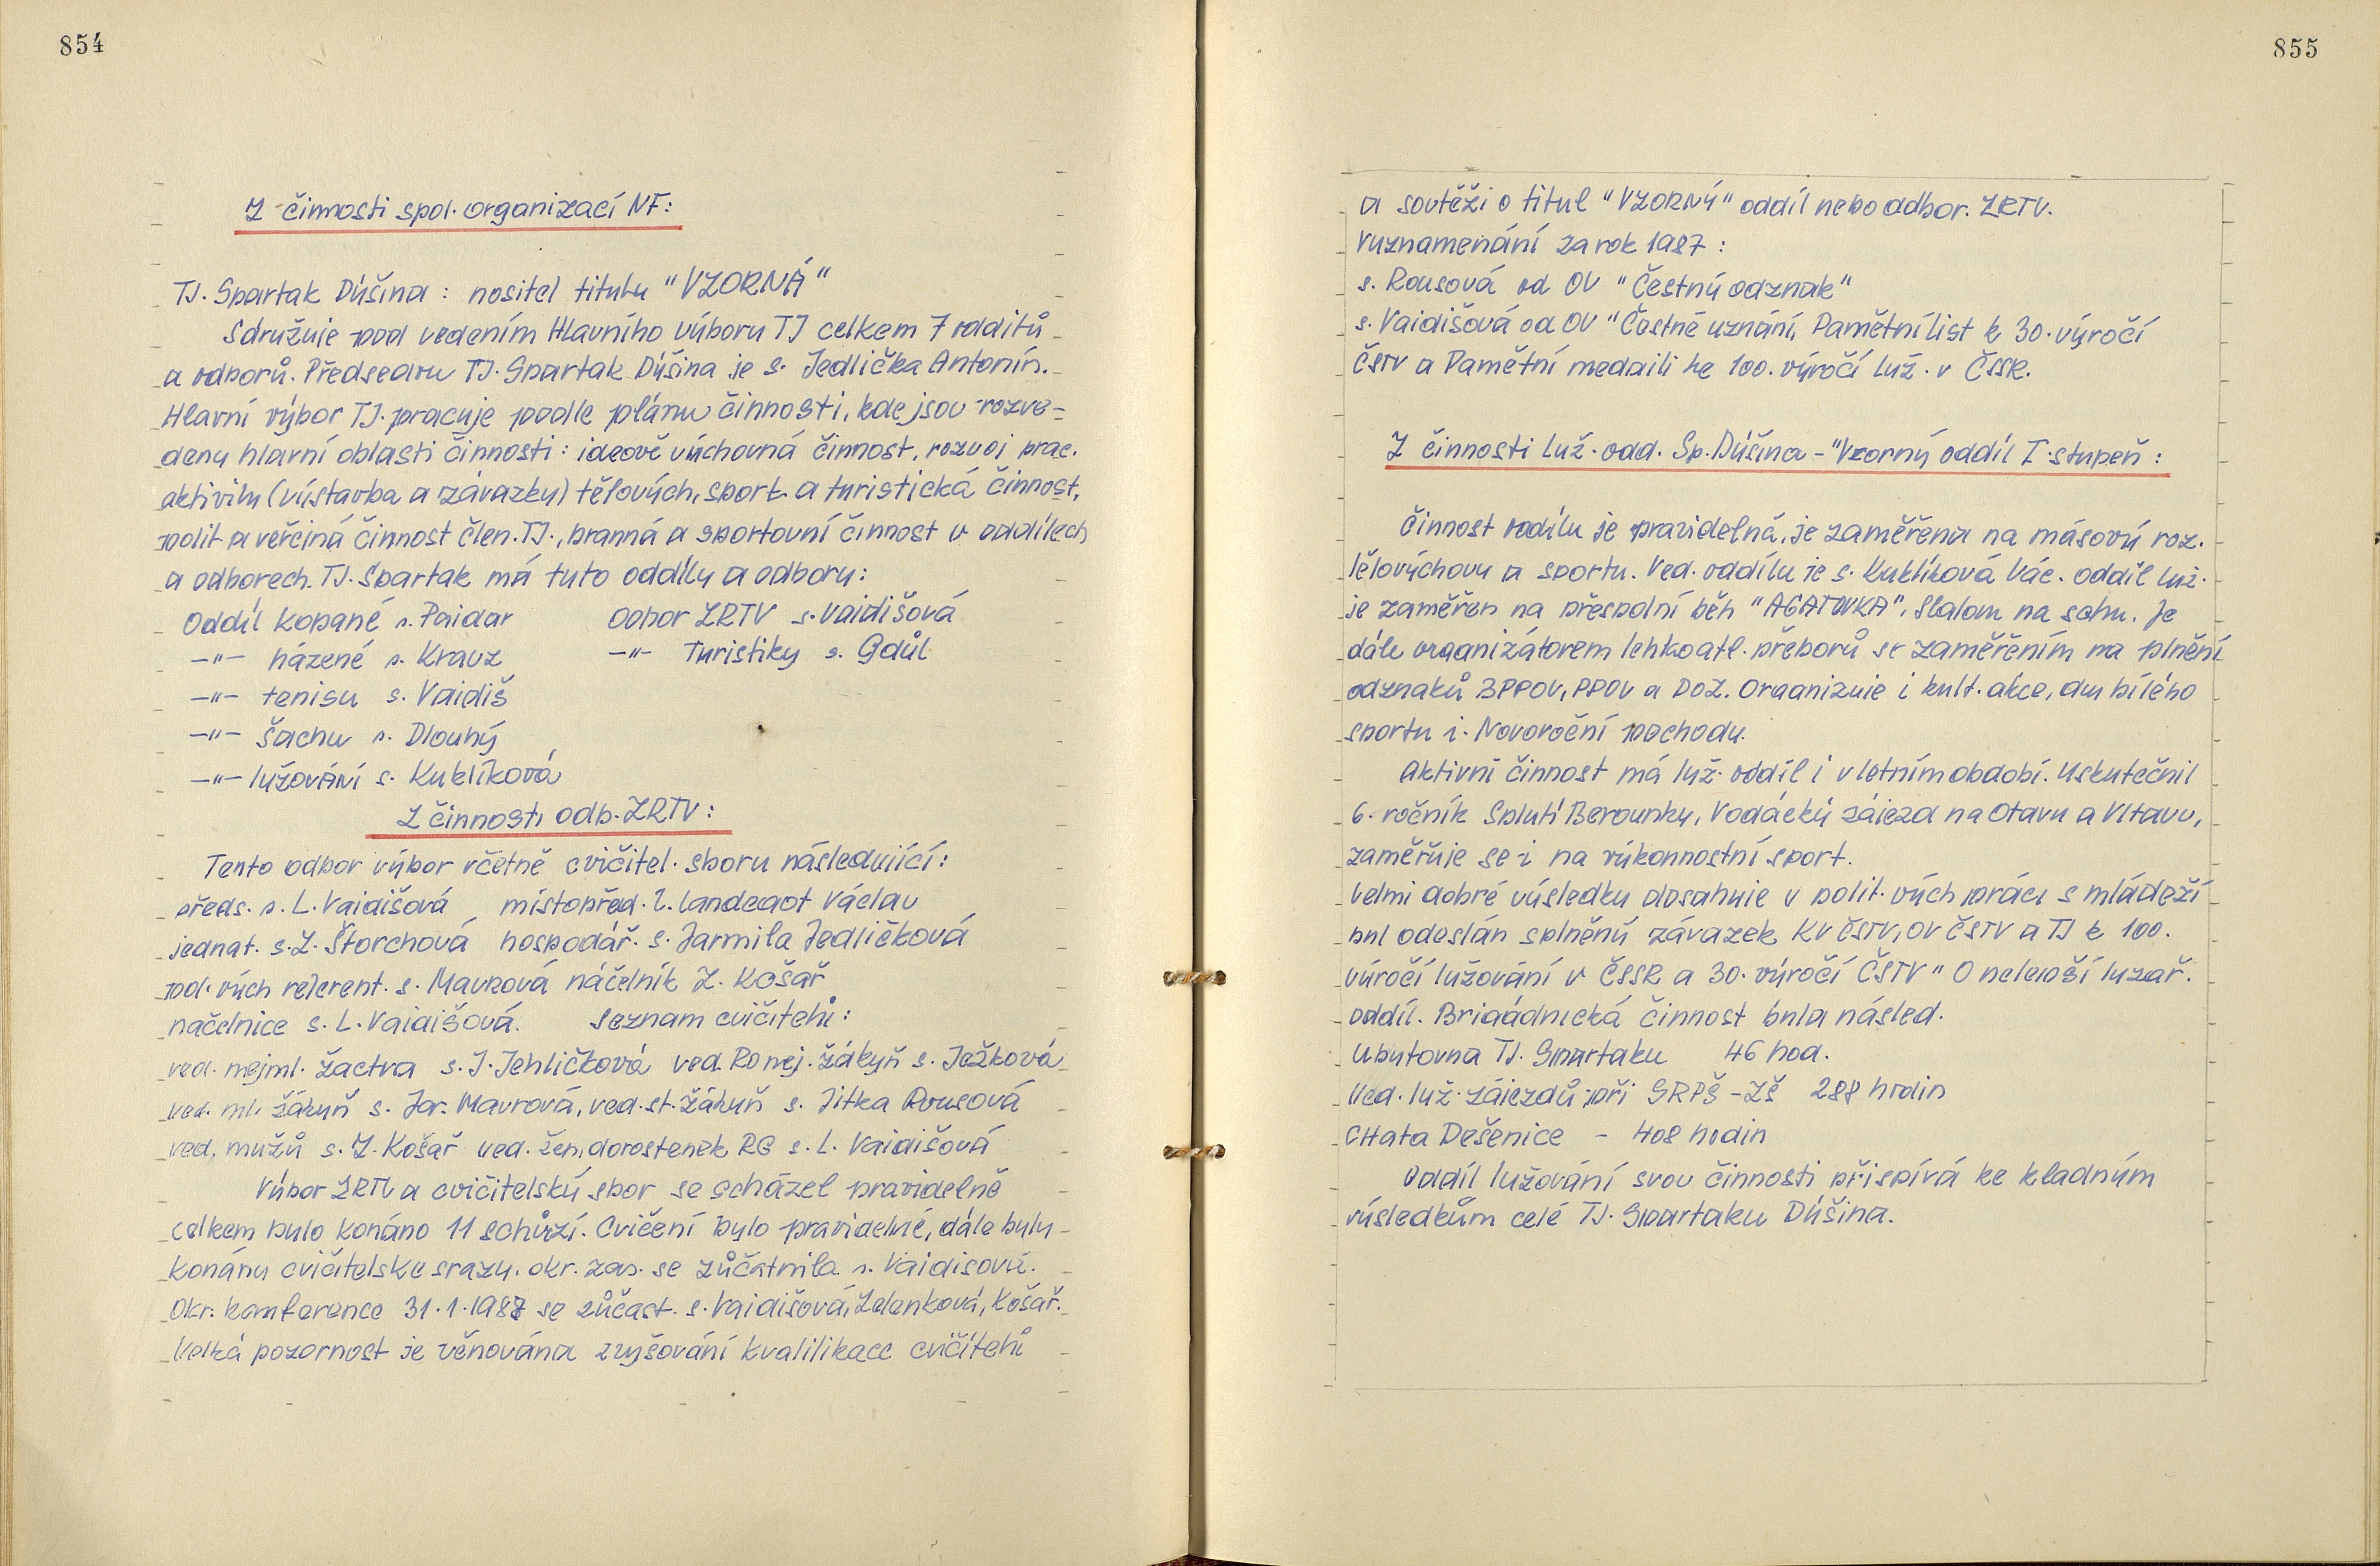 854
Z činnosti spol. organizací NF:
TJ. Spartak Dýšina : nositel titulu "VZORNÁ"
Sdružuje pod vedením Hlavního výboru TJ celkem 7 oddílů
a odborů. Předsedou TJ. Spartak Dýšina je s. Jedlička Antonín.
Hlavní výbor TJ. pracuje podle plánu činnosti, kde jsou rozve-
deny hlavní oblasti činnosti: ideově výchovná činnost, rozvoj prac.
aktivity (výstavba a závazky) tělových, sport. a turistická činnost,
polit. a veřejná činnost člen. TJ., branná a sportovní činnost v oddílech
a odborech. TJ. Spartak má tuto oddíly a odbory:
Oddíl kopané s. Pajdar Odbor ZRTV s. Vaidišová
-"- házené s. Krauz -"- Turistiky s. Gdůl
-"- tenisu s. Vaidiš
-"- šachu s. Dlouhý
-"- lyžování s. Kuklíková
Z činnosti odb. ZRTV:
Tento odbor výbor včetně cvičitel. sboru následující:
předs. s. L. Vaidišová místopřed. Landegot Václav
jednat. s. Z. Štorchová hospodář. s. Jarmila Jedličková
pol. vých referent. s. Maurová náčelník Z. Košař
načelnice s. L. Vaidišová. Seznam cvičitelů:
ved. nejml. žactva s. J. Jehličková ved. RG nej. žákyň s. Ježková
ved. ml. žákyň s. Jar. Maurová, ved. st. žákyň s. Jitka Rousová
ved. mužů s. Z. Košař ved. žen, dorostenek RG s. L. Vaidišová
Výbor ZRTV a cvičitelský sbor se scházel pravidelně
celkem bylo konáno 11 schůzí. Cvičení bylo pravidelné, dále byly
konány cvičitelske srazy. okr. zas. se zůčatnila s. Vaidisová.
Okr. konference 31.1.1987 se zůčast. s. Vaidišová, Zelenková, Košař.
Velká pozornost je věnována zvyšování kvalifikace cvičitelů
855
a soutěži o titul "VZORNÝ" oddíl nebo odbor. ZRTV.
Vyznamenání za rok 1987 :
s. Rousová od OV "Čestný odznak"
s. Vaidišová od OV "Čestné uznání, Pamětní list k 30. výročí
ČSTV a Pamětní medaili ke 100. výročí lyž. v ČSSR.
Z činnosti lyž. odd. Sp. Dýšina - "Vzorný oddíl I. stupeň :
Činnost oddílu je pravidelná, je zaměřena na másový roz.
tělovýchovy a sportu. Ved. oddílu je s. Kuklíková Vác. oddíl lyž.
je zaměřen na přespolní běh "AGATOVKA", Slalom na sahu. Je
dále organizátorem lehkoatl. přeborů se zaměřením na plnění
odznaků BPPOV, PPOV a DOZ. Organizuje i kult. akce, dny bílého
sportu i. Novoroční pochody.
Aktivní činnost má lyž. oddíl i v letním období. Uskutečnil
6. ročník Splutí Berounky, Vodácký zájezd na Otavu a Vltavu,
zaměřuje se i na výkonnostní sport.
Velmi dobré výsledky dosahuje v polit. vých práci s mládeží
byl odeslán splněný závazek KV ČSTV, OV ČSTV a TJ k 100.
výročí lyžování v ČSSR a 30. výročí ČSTV " O nejlepší lyzař.
oddíl. Brigádnická činnost byla násled.
Ubytovna TJ. Spartaku 46 hod.
Ved. lyž. zájezdů při SRPŠ - ZŠ 288 hodin
CHata Dešenice - 408 hodin
Oddíl lyžování svou činnosti přispívá ke kladným
výsledkům celé TJ. Spartaku Dýšina.